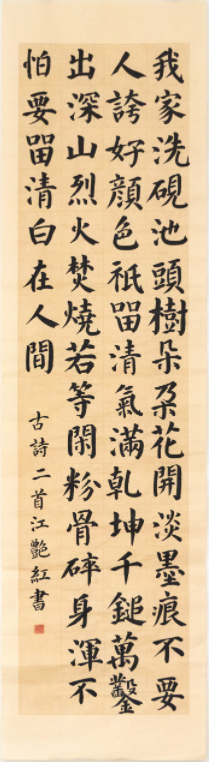 我家洗硯池頭樹朵朵花開淡墨痕不要
人誇好顏色祇留清氣滿乾坤千鎚萬鑿
出深山烈火焚燒若等閑粉骨碎身渾不
怕要留清白在人間
古詩二首江艷紅書